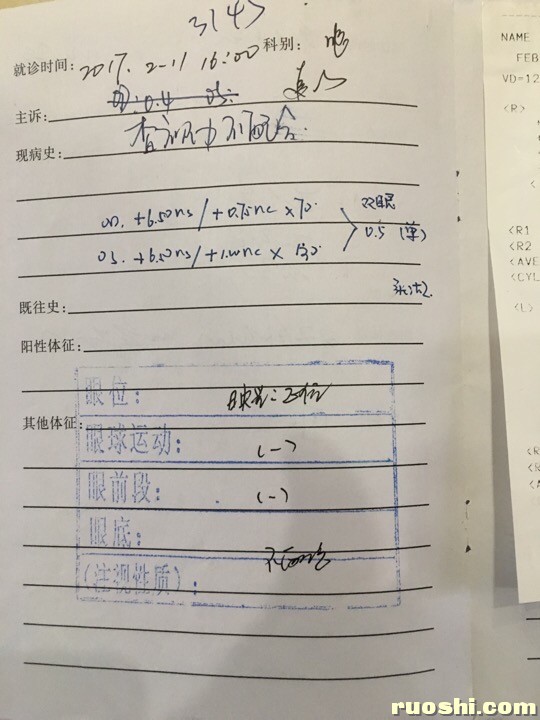 3143
就诊时间: 2017. 2-11 16:00 科别: 眼
主诉: 0.4
现病史: 查视力不配合
OD. +6.50DS / +0.75DC × 70. 双眼
OS. +6.50DS / +1.00DC × 130. 0.5 (单)
既往史:
阳性体征:
眼位: 映光: 正位
其他体征:
眼球运动: (-)
眼前段: (-)
眼底:
(注视性质): 不配合
NAME
FEB
VD=12
<R>
<
<R1
<R2
<AVE
<CYL
<L>
<R
<R
<A
ruoshi.com